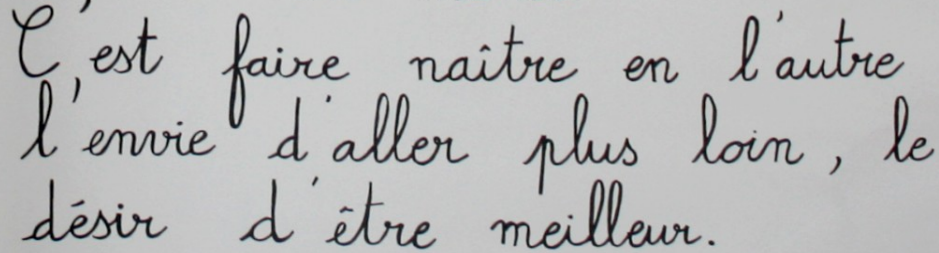 C'est faire naître en l'autre
l'envie d'aller plus loin, le
désir d'être meilleur.